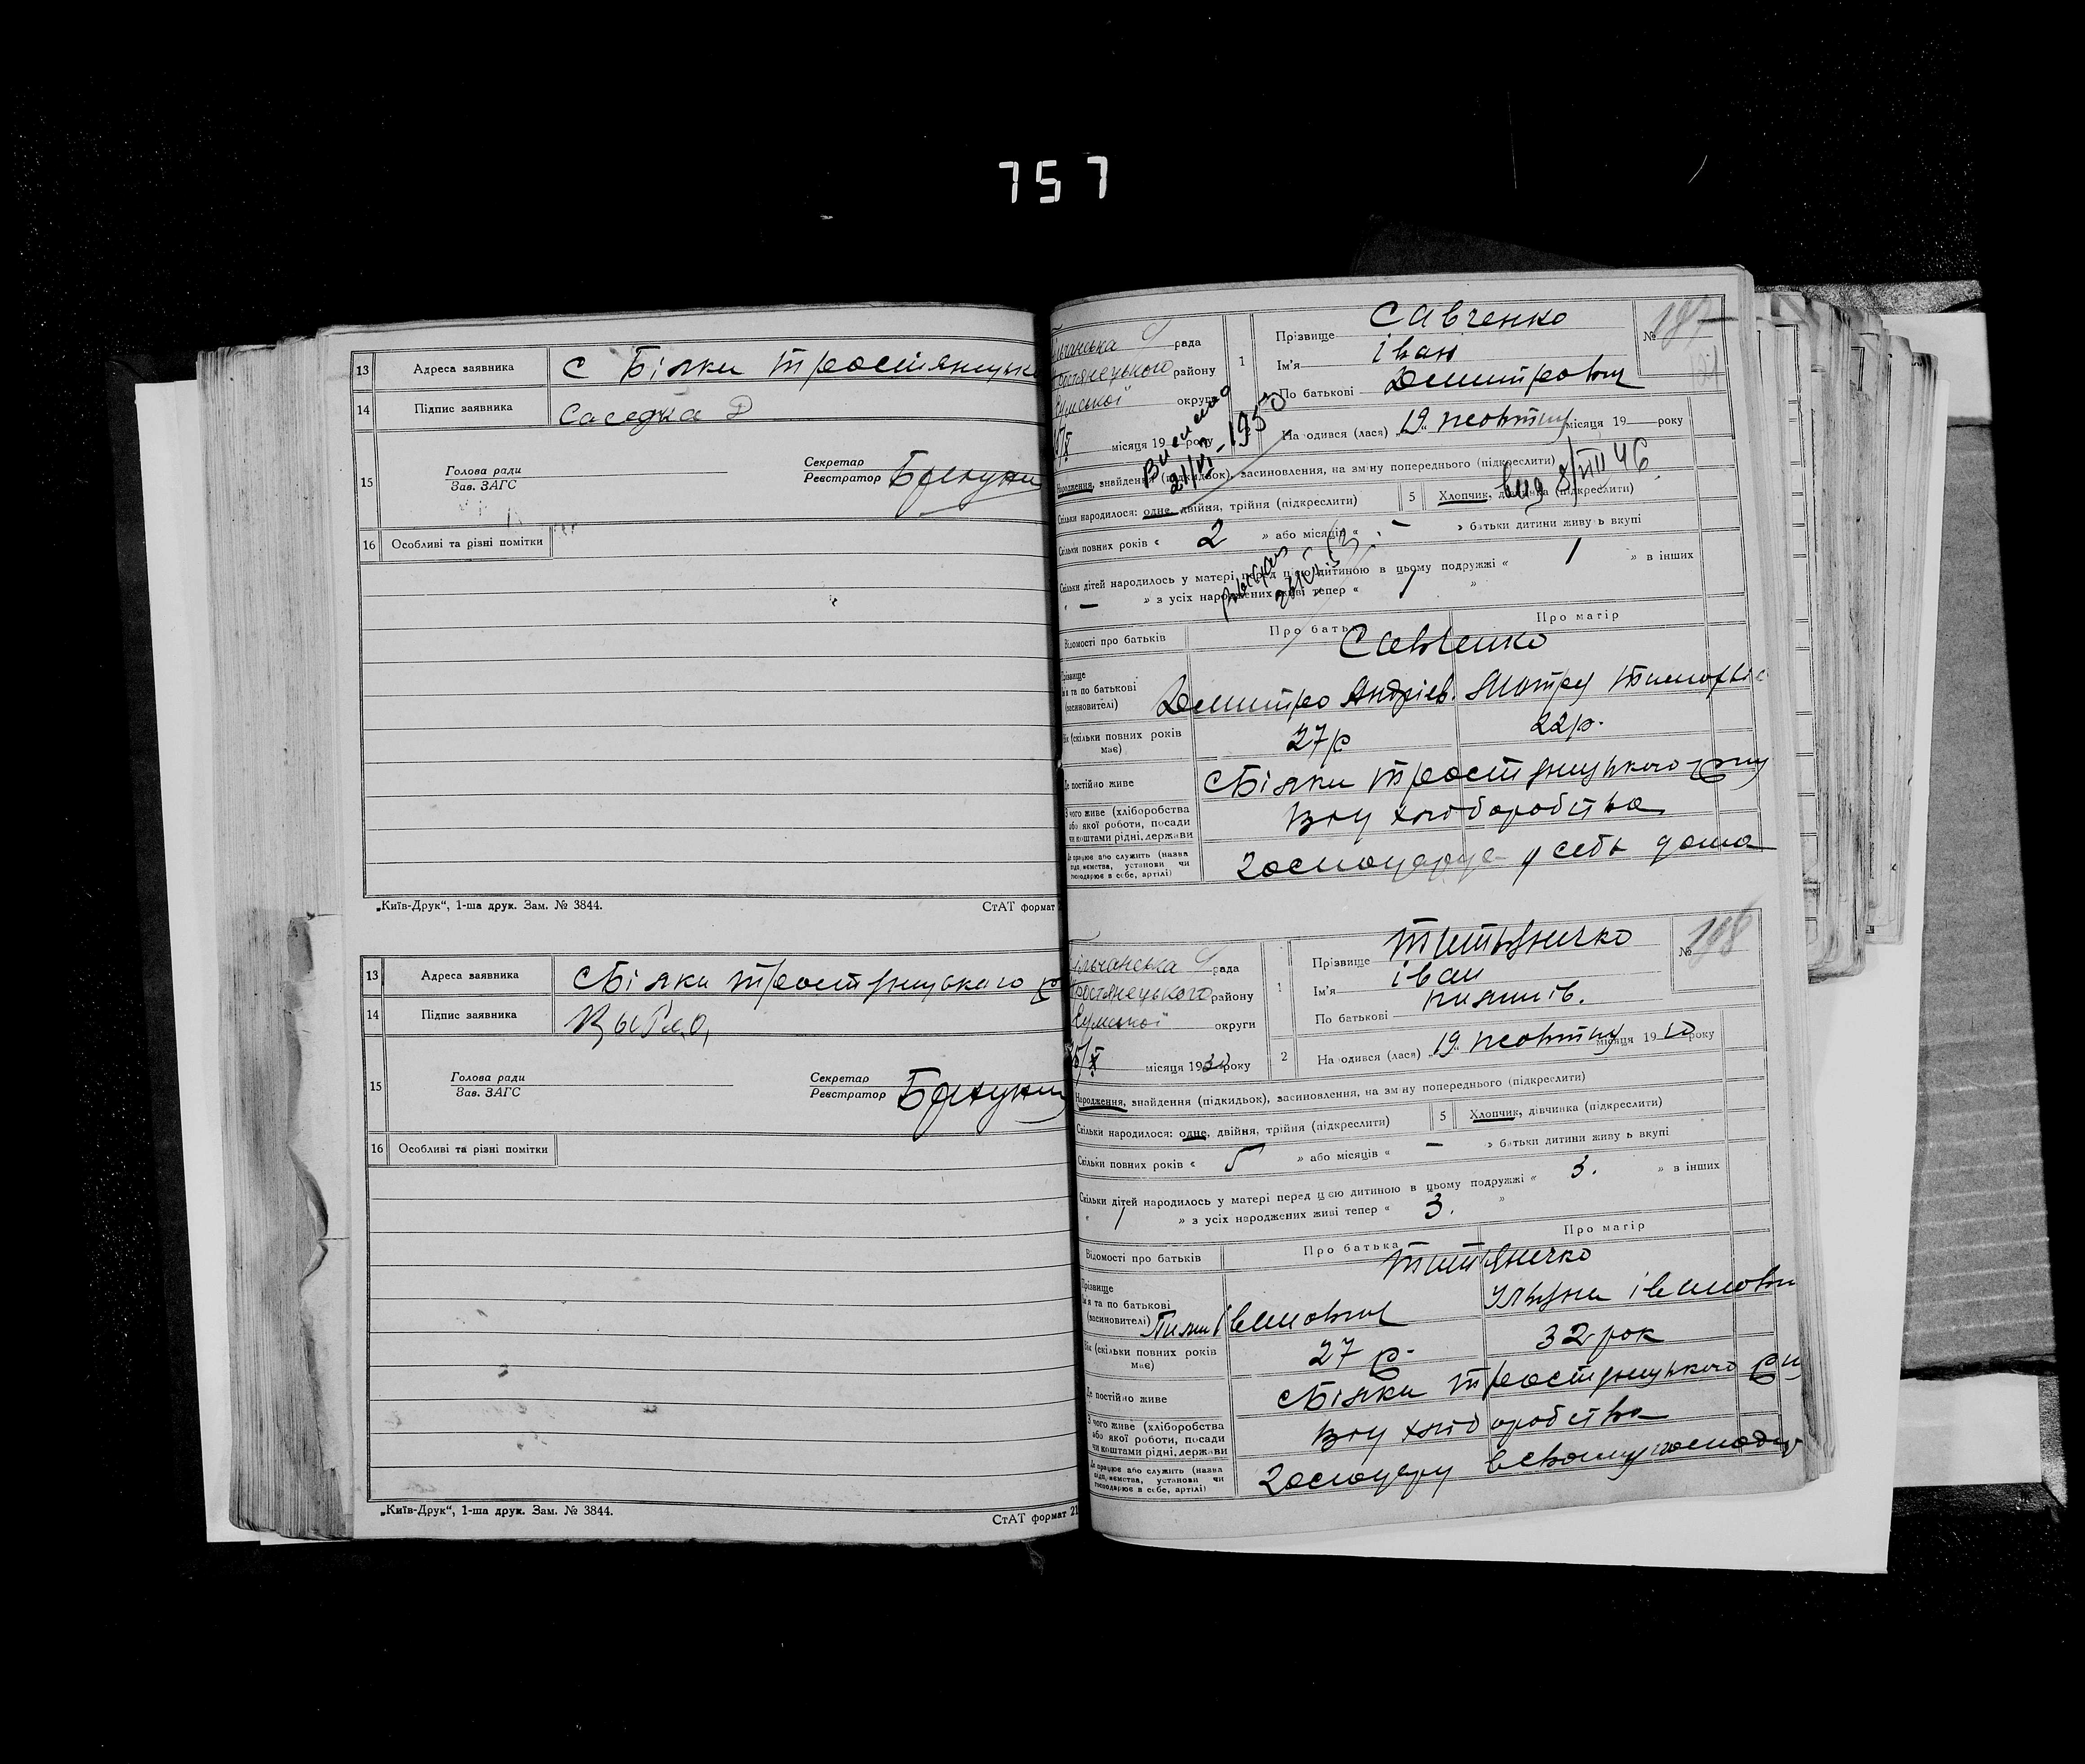 757
13 Адреса заявника с Білки Тростянецьк
14 Підпис заявника Саседка Д
15 Голова ради
Зав. ЗАГС
Секретар
Реєстратор
16 Особливі та різні помітки
„Київ-Друк“, 1-ша друк. Зам. № 3844.
СтАТ формат
13 Адреса заявника с Білки Тростянецького
14 Підпис заявника
15 Голова ради
Зав. ЗАГС
Секретар
Реєстратор
16 Особливі та різні помітки
„Київ-Друк“, 1-ша друк. Зам. № 3844.
СтАТ формат 21
рада
Тростянецького району
Сумської округи
15/X місяця 19 року
1 Прізвище Савченко
Ім'я іван
По батькові Дмитрович
№ 197
Народився (лася) „19“ жовтня місяця 19 року
Народження, знайдення (підкидьок), засиновлення, на зміну попереднього (підкреслити)
21/VI-1950
вид 8/VIII 46
Скільки народилося: одне, двійня, трійня (підкреслити) 5 Хлопчик, дівчинка (підкреслити)
Скільки повних років « 2 » або місяців « - » батьки дитини живуть вкупі
Скільки дітей народилось у матері перед цією дитиною в цьому подружжі « 1 » в інших
« — » з усіх народжених живі тепер « 1 »
Відомості про батьків Про батька Про матір
Савченко
Прізвище
ім'я та по батькові
(засиновителі)
Дмитро Андріев. Мотря Тимофѣ
Вік (скільки повних років має) 27р 22р.
Де постійно живе с Білки Тростянецького р-ну
З чого живе (хліборобства
або якої роботи, посади
чи коштами рідні, держави
від хліборобства
Де працює або служить (назва
підприємства, установи чи
господарює в себе, артілі)
господарує у себе дома
рада
Тростянецького району
Сумської округи
15/X місяця 1930 року
1 Прізвище Титянічко
Ім'я іван
По батькові пилипів.
№ 198
2 Народився (лася) „19“ жовтня місяця 19 року
Народження, знайдення (підкидьок), засиновлення, на зміну попереднього (підкреслити)
Скільки народилося: одне, двійня, трійня (підкреслити) 5 Хлопчик, дівчинка (підкреслити)
Скільки повних років « 5 » або місяців « — » батьки дитини живуть вкупі
Скільки дітей народилось у матері перед цією дитиною в цьому подружжі « 3. » в інших
« 1 » з усіх народжених живі тепер « 3. »
Відомості про батьків Про батька Про матір
Титянічко
Прізвище
ім'я та по батькові
(засиновителі)
Пилип івanович Уляна івановн
Вік (скільки повних років має) 27 р. 32 рок
Де постійно живе с Білки Тростянецького р-ну
З чого живе (хліборобства
або якої роботи, посади
чи коштами рідні, держави
від хліборобства
Де працює або служить (назва
підприємства, установи чи
господарює в себе, артілі)
господару в свому господар